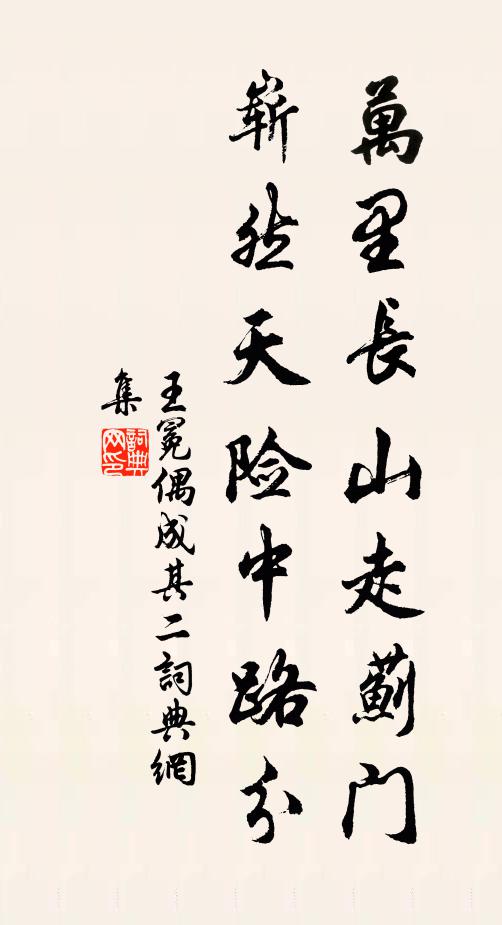 萬里長山走薊门
嶄然天险中路分
王冕偶成其二詞典網
集
詞典
网印